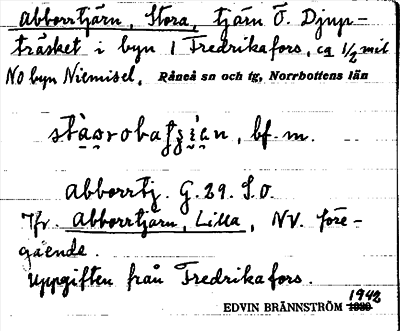 Abborrtjärn, Stora, tjärn Ö. Djup-
träsket i byn 1 Fredrikafors, ca 1/2 mil
NO byn Niemisel. Råneå sn och tg, Norrbottens län
bf. m.
Abborrtj. G. 29. S.O.
Jfr. Abborrtjärn, Lilla, NV. före-
gående.
Uppgiften från Fredrikafors.
1942
EDVIN BRÄNNSTRÖM 1939